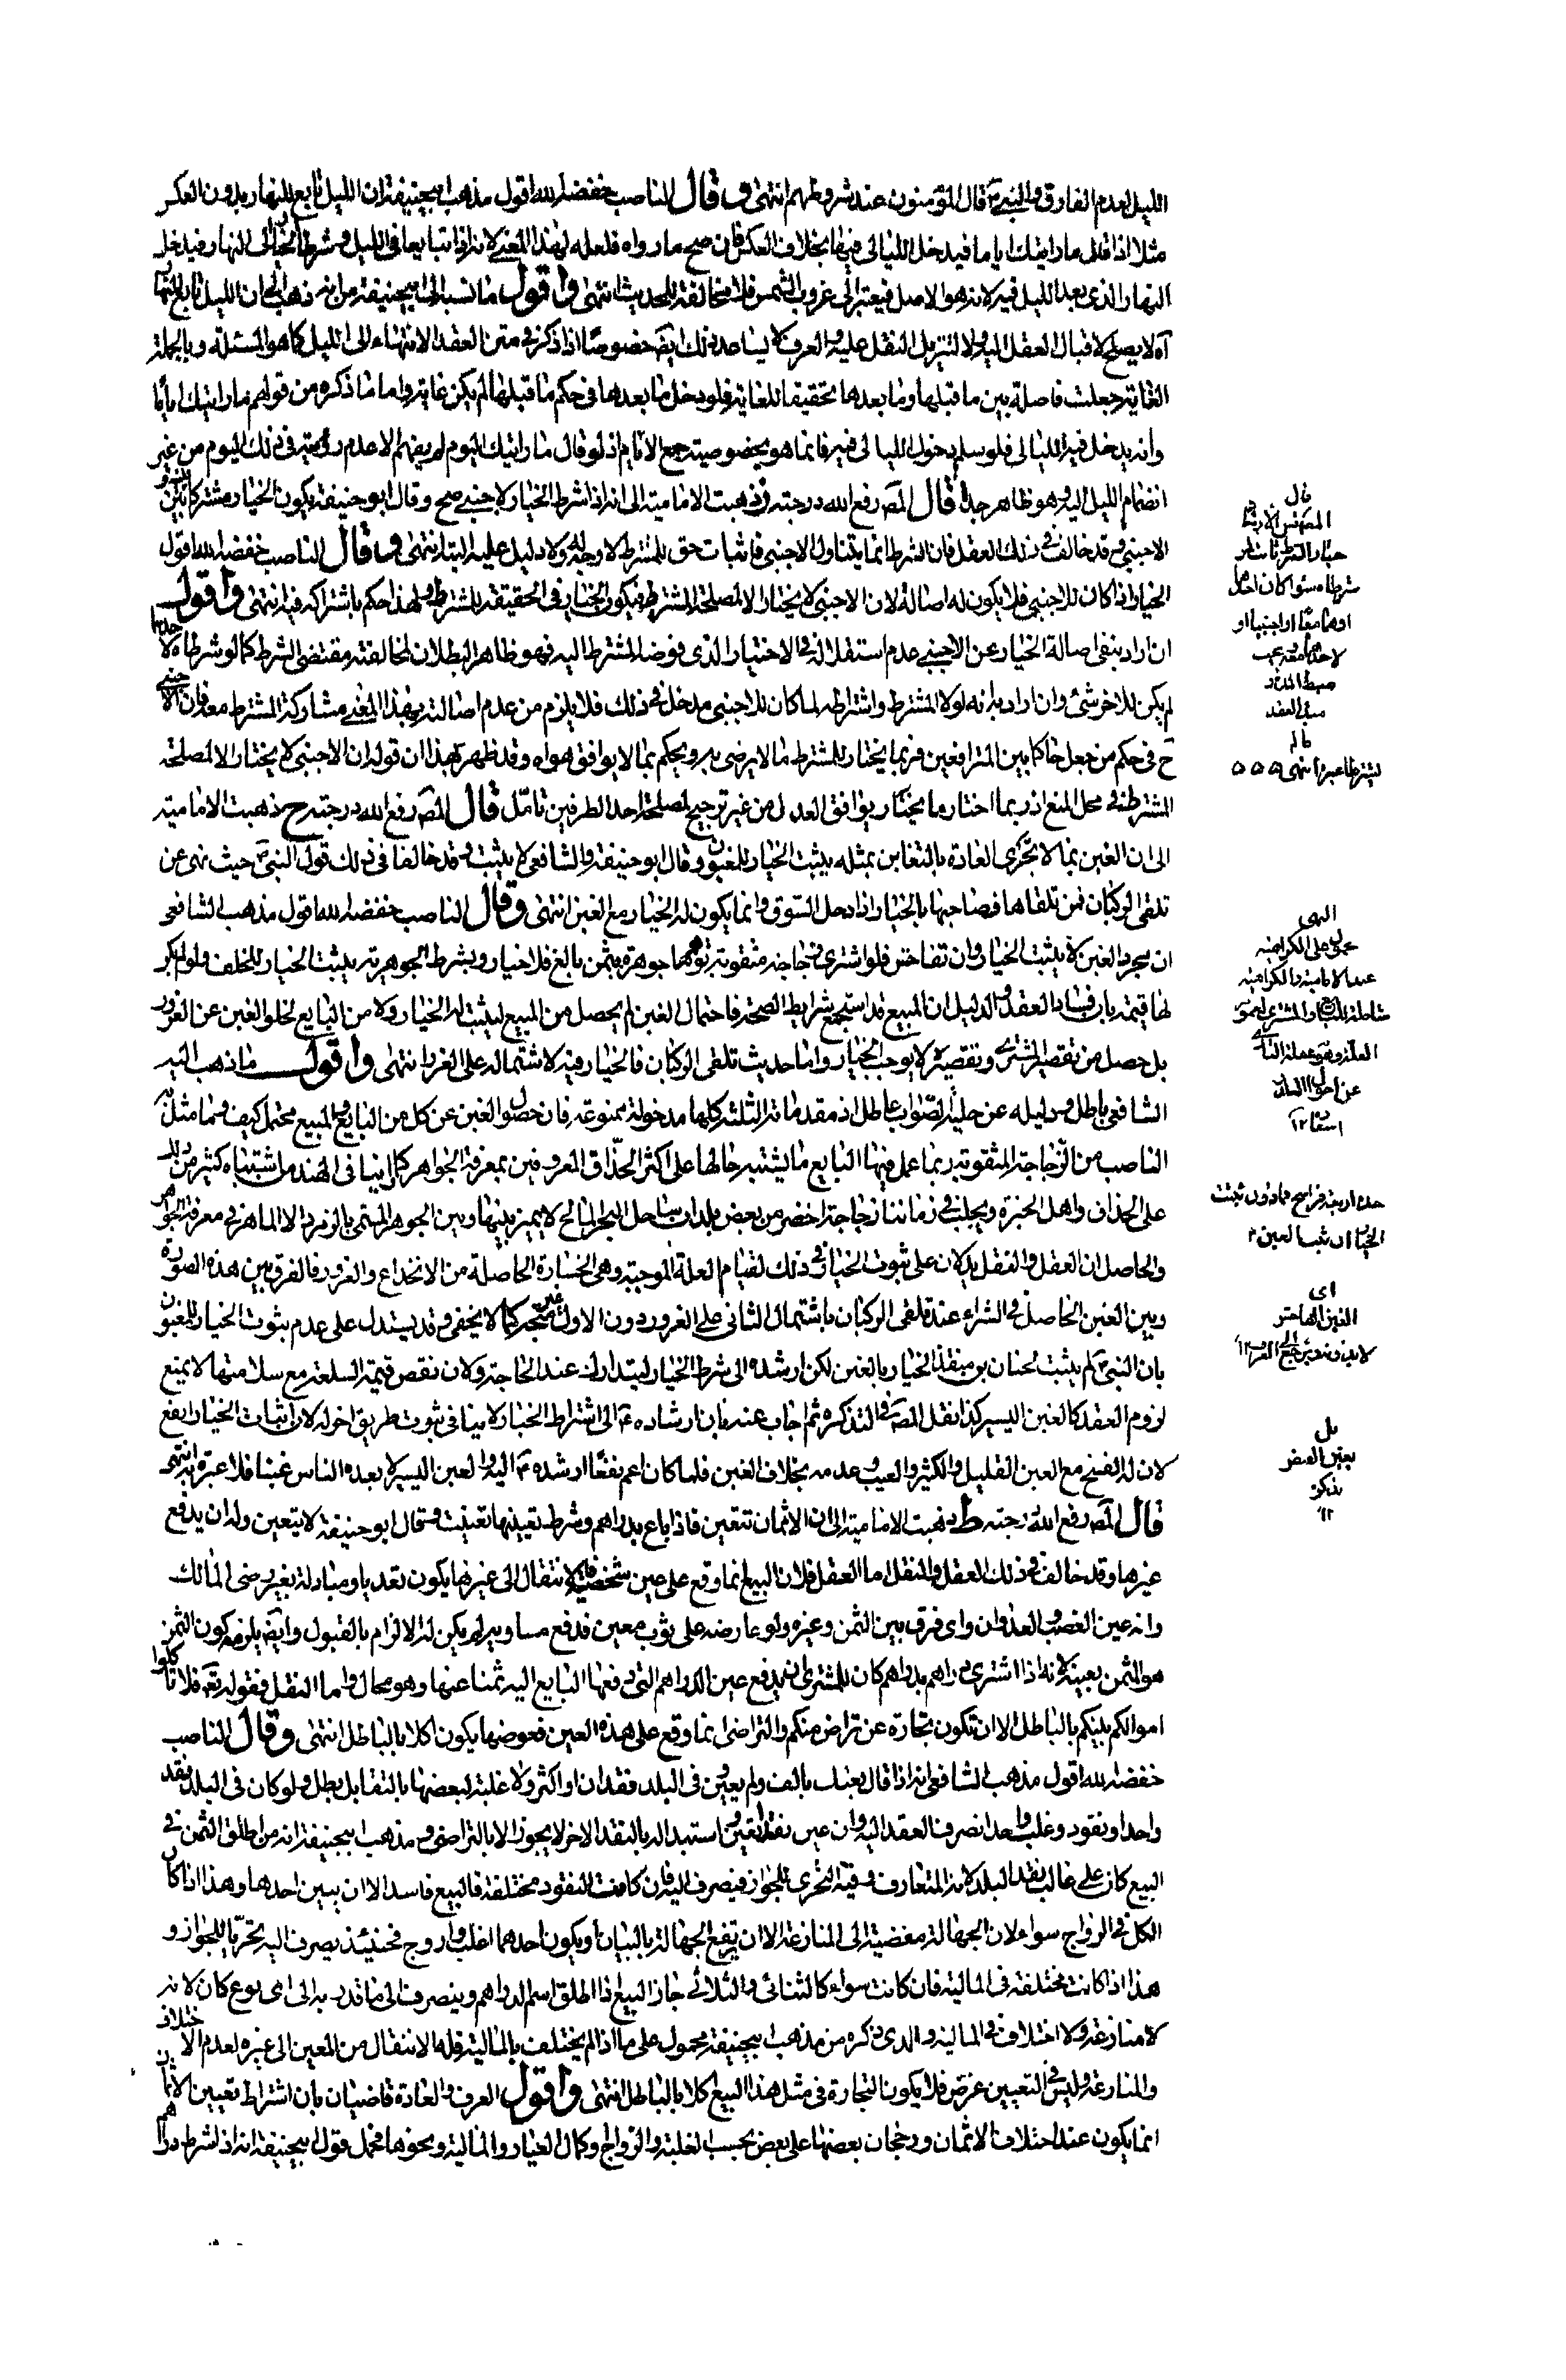 الليل لعدم الفارق والنبي ص قال المؤمنون عند شروطهم انتهى وقال الناصب خفضه الله اقول مذهب ابيحنيفة ان الليل تابع للنهار بدون العكس
مثلا اذا قلت ما رايتك اياما فيدخل الليالى فيها بخلاف العكس فان صح ما رواه فلعله لهذا المعنى لانه اذا تبايعا فى الليل وشرطا الخيار الى النهار فيدخل
النهار الذى بعد الليل فيه لانه هو الاصل فيعتبر الى غروب الشمس فلا مخالفة للحديث انتهى واقول ما نسبه الى ابيحنيفة من انه ذهب الى ان الليل تابع للنهار
آه لا يصلح لاقبال العقل اليه ولا لتنزيل النقل عليه والعرف لا يساعد ذلك ايضا خصوصا اذا ذكر فى متن العقد الانتهاء الى الليل كما هو المسئلة وبالجملة
الغاية جعلت فاصلة بين ما قبلها وما بعدها تحقيقا للغاية فلو دخل ما بعدها فى حكم ما قبلها لم يكن غاية واما ما ذكره من قولهم ما رايتك اياما
وانه يدخل فيه الليالى فلو سلم دخول الليالى فيه فانما هو بخصوصية جمع الايام اذ لو قال ما رايتك اليوم لم يفهم الا عدم رؤيته فى ذلك اليوم من غير
انضمام الليل اليه وهو ظاهر جدا قال المص رفع الله درجته ز ذهبت الامامية الى انه اذا شرط الخيار لاجنبى صح وقال ابو حنيفة يكون الخيار مشتركا بينه و
الاجنبى وقد خالف فى ذلك العقل فان الشرط انما يتناول الاجنبى فاثبات حق للمشترط لا وجه له ولا دليل عليه البتة انتهى وقال الناصب خفضه الله اقول
الخيار اذا كان للاجنبى فلا يكون له اصالة لان الاجنبى لا يختار الا لمصلحة المشترط فيكون الخيار فى الحقيقة للمشترط ولهذا حكم باشتراكه فيه انتهى واقول
ان اراد بنفى اصالة الخيار عن الاجنبى عدم استقلاله فى الاختيار الذى فوضه المشترط اليه فهو ظاهر البطلان لمخالفته مقتضى الشرط كما لو شرطاه لاحدهما
لم يكن للاخر شئ وان اراد به انه لولا المشترط واشتراطه لما كان للاجنبى مدخل فى ذلك فلا يلزم من عدم اصالته بهذا المعنى مشاركة المشترط معه فان الاجنبى
ح فى حكم من جعل حاكما بين المترافعين فربما يختار للمشترط ما لا يرضى به ويحكم بما لا يوافق هواه وقد ظهر بهذا ان قوله ان الاجنبى لا يختار الا لمصلحة
المشترط فى محل المنع اذ ربما اختار ما يختار يوافق العدل من غير ترجيح لمصلحة احد الطرفين تامل قال المص رفع الله درجته ح ذهبت الامامية
الى ان الغبن بما لا تجرى العادة بالتغابن بمثله يثبت الخيار للمغبون وقال ابو حنيفة والشافعى لا يثبت وقد خالفا فى ذلك قول النبى ص حيث نهى عن
تلقى الركبان فمن تلقاها فصاحبها بالخيار اذا دخل السوق وانما يكون له الخيار مع الغبن انتهى وقال الناصب خفضه الله اقول مذهب الشافعى
ان مجرد الغبن لا يثبت الخيار وان تفاحش فلو اشترى زجاجة مثقوبة توهمها جوهرة بثمن بالغ فلا خيار وبشرط الجوهرية يثبت الخيار للخلف ولو لم يكن
لها قيمة بان فساد العقد والدليل ان المبيع قد استجمع شرايط الصحة فاحتمال الغبن لم يحصل من المبيع ليثبت له الخيار ولا من البايع لخلو الغبن عن الغرور
بل حصل من تقصير المشترى وتقصيره لا يوجب الخيار واما حديث تلقى الركبان فالخيار فيه لاشتماله على الغرر انتهى واقول ما ذهب اليه
الشافعى باطل ودليله عن حلية الصواب عاطل اذ مقدماته الثلثة كلها مدخولة ممنوعة فان حصول الغبن عن كل من البايع والمبيع محتمل كيف وما مثل به
الناصب من الزجاجة المثقوبة ربما عمل فيها البايع ما يشتبه حالها على اكثر الحذاق المعروفين بمعرفة الجواهر كما راينا فى الهند من اشتباه كثير من ذلك
على الحذاق واهل الخبرة ويجلب فى زماننا زجاجة اخضر من بعض بلدان ساحل البحر المالح لا يميز بينها وبين الجوهر المسمى بالزمرد الا الماهر فى معرفة الجواهر
والحاصل ان العقل والنقل يدلان على ثبوت الخيار فى ذلك لقيام العلة الموجبة وهى الخسارة الحاصلة من الانخداع والغرور فالفرق بين هذه الصورة
وبين الغبن الحاصل فى الشراء عند تلقى الركبان باشتمال الثانى على الغرور دون الاول غير متجه كما لا يخفى وقد يستدل على عدم ثبوت الخيار للمغبون
بان النبى ص لم يثبت لحنان بن منقذ الخيار بالغبن لكن ارشده الى شرط الخيار ليتدارك عند الحاجة ولان نقص قيمة السلعة مع سلامتها لا يمنع
لزوم العقد كالغبن اليسير كذا نقل المص فى التذكرة ثم اجاب عنه فان ارشاده ص الى اشتراط الخيار لا ينافى ثبوت طريق اخر له لان اثبات الخيار انفع
لان له الفسخ مع الغبن القليل والكثير والعيب وعدمه بخلاف الغبن فلما كان اعم نفعا ارشده ص اليه والغبن اليسير لا يعده الناس غبنا فلا عبرة به انتهى
قال المص رفع الله درجته ط ذهبت الامامية الى ان الاثمان تتعين فاذا باع بدراهم وشرط تعيينها تعينت وقال ابو حنيفة لا يتعين وله ان يدفع
غيرها وقد خالف فى ذلك العقل والنقل اما العقل فلان البيع انما وقع على عين شخصية فالانتقال الى غيرها يكون تعديا ومبادلة بغير رضى المالك
وانه عين الغصب والعدوان واى فرق بين الثمن وغيره ولو عاوضه على ثوب معين فدفع مساويه لم يكن له الالزام بالقبول وايضا يلزمه كون الثمن
هو المثمن بعينه لانه اذا اشترى دراهم بدراهم كان للمشترى ان يدفع عين الدراهم التى دفعها البايع اليه ثمنا عنها وهو محال واما النقل فقوله تعالى فلا تاكلوا
اموالكم بينكم بالباطل الا ان تكون تجارة عن تراض منكم والتراضى انما وقع على هذه العين فعوضها يكون اكلا بالباطل انتهى وقال الناصب
خفضه الله اقول مذهب الشافعى انه اذا قال بعتك بالف ولم يعين وفى البلد نقدان او اكثر ولا غلبة لبعضها بالتقابل بطل ولو كان فى البلد نقد
واحد او نقود وغلب واحد انصرف العقد اليه وان عين نقدا تعين واستبداله بالنقد الاخر لا يجوز الا بالتراضى ومذهب ابيحنيفة انه من اطلق الثمن فى
البيع كان على غالب نقد البلد لانه المتعارف وفيه التحرى للجواز فيصرف اليه فان كانت النقود مختلفة فالبيع فاسد الا ان يبين احدها وهذا اذا كان
الكل فى الرواج سواء لان الجهالة مفضية الى المنازعة الا ان يرتفع الجهالة بالبيان او يكون احدهما اغلب واروج فحينئذ يصرف اليه تحريا للجواز و
هذا اذا كانت مختلفة فى المالية فان كانت سواء كالثنائى والثلاثى جاز البيع اذا اطلق اسم الدراهم وينصرف الى ما قدر به الى اى نوع كان لانه
لا منازعة ولا اختلاف فى المالية والذى ذكره من مذهب ابيحنيفة محمول على ما اذا لم يختلف بالمالية فله الانتقال من المعين الى غيره لعدم الاختلاف
والمنازعة وليس فى التعيين غرض فلا يكون التجارة فى مثل هذا البيع اكلا بالباطل انتهى واقول العرف والعادة قاضيان بان اشتراط تعيين الاثمان
انما يكون عند اختلاف الاثمان ورجحان بعضها على بعض بحسب الغلبة والرواج وكمال العيار والمالية ونحوها فحمل قول ابيحنيفة انه اذا شرط دراهم
قال
شرطاه سواء كان احدهما
او هما معا او اجنبيا او
النهى
محمول على الكراهية
عند الامامية والكراهية
اى
الغبن الفاحش